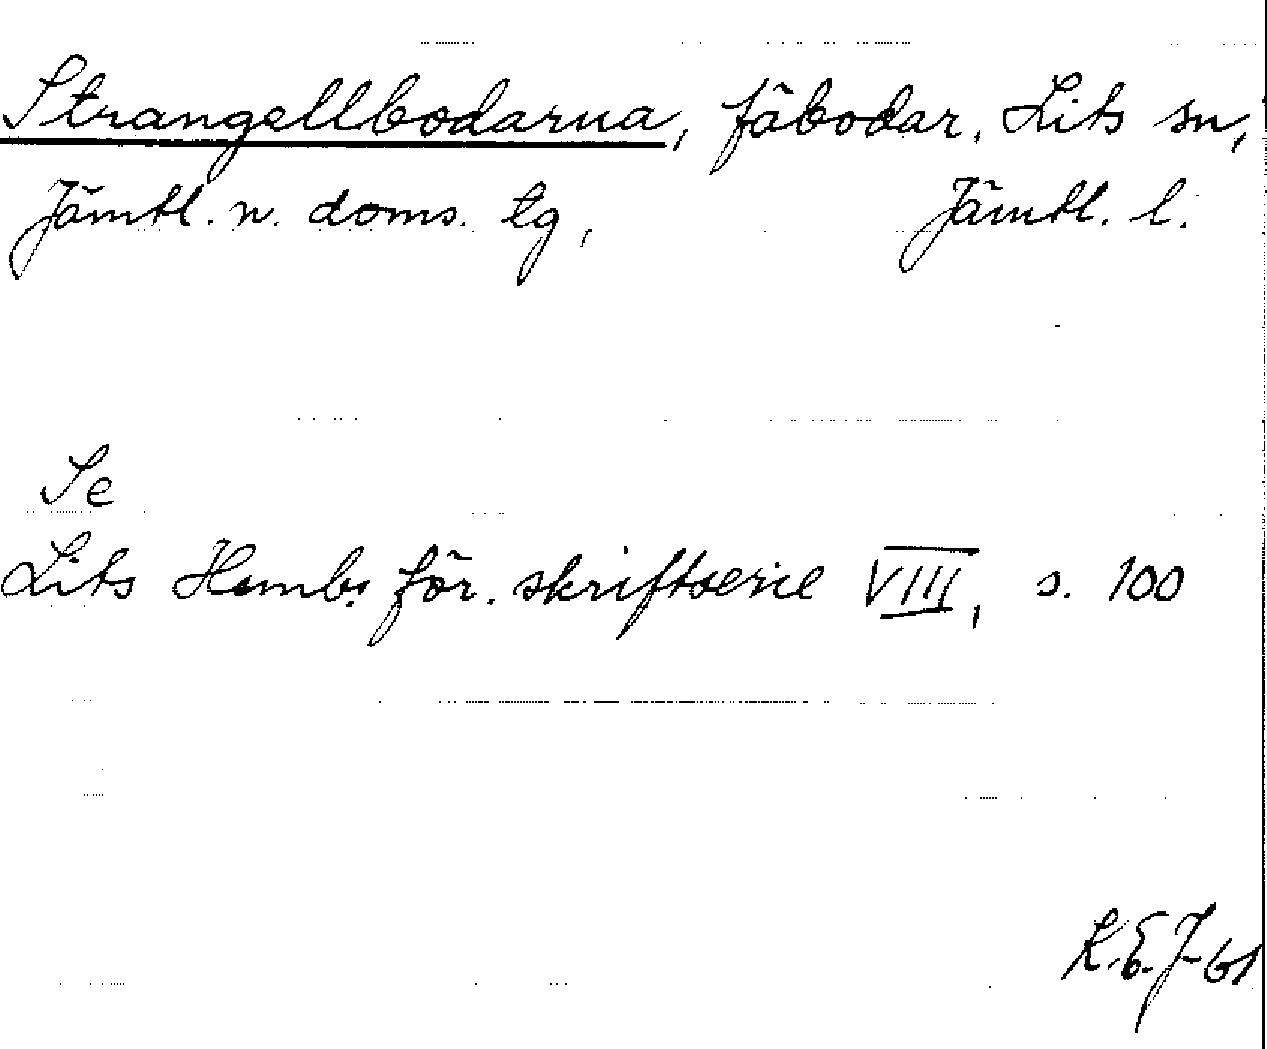 Strangellbodarna, fäbodar, Lits sn,
Jämtl. n. doms. tg, Jämtl. l.
Se
Lits Hembs för. skriftserie VIII, s. 100
K.E.J-61